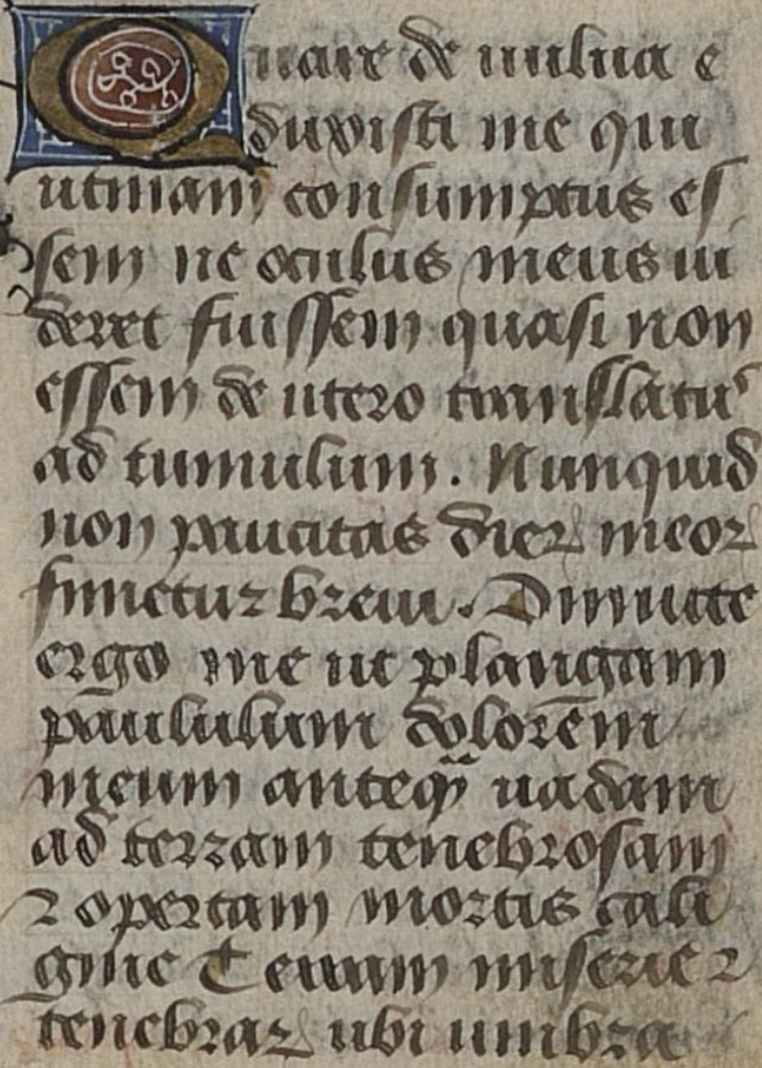 Quare de uulua e
duxisti me qui
utinam consumptus es
sem ne oculus meus ui
deret fuissem quasi non
essem de utero translatuꝰ
ad tumulum. Nunquid
non paucitas dieꝝ meoꝝ
finietur breui. Dimitte
ergo me ut plangam
paululum dolorem
meum anteqͣ uadam
ad terram tenebrosam
⁊ opertam mortis cali
gine Terram miserie ⁊
tenebraꝝ ubi umbra